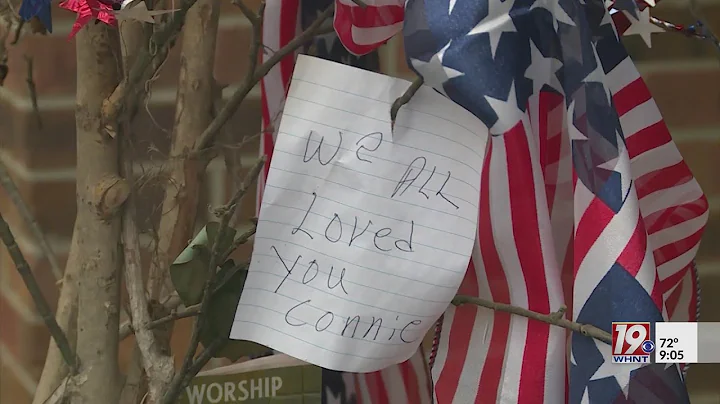 We ALL
Loved
You
Connie
WORSHIP
19
WHNT
72°
9:05